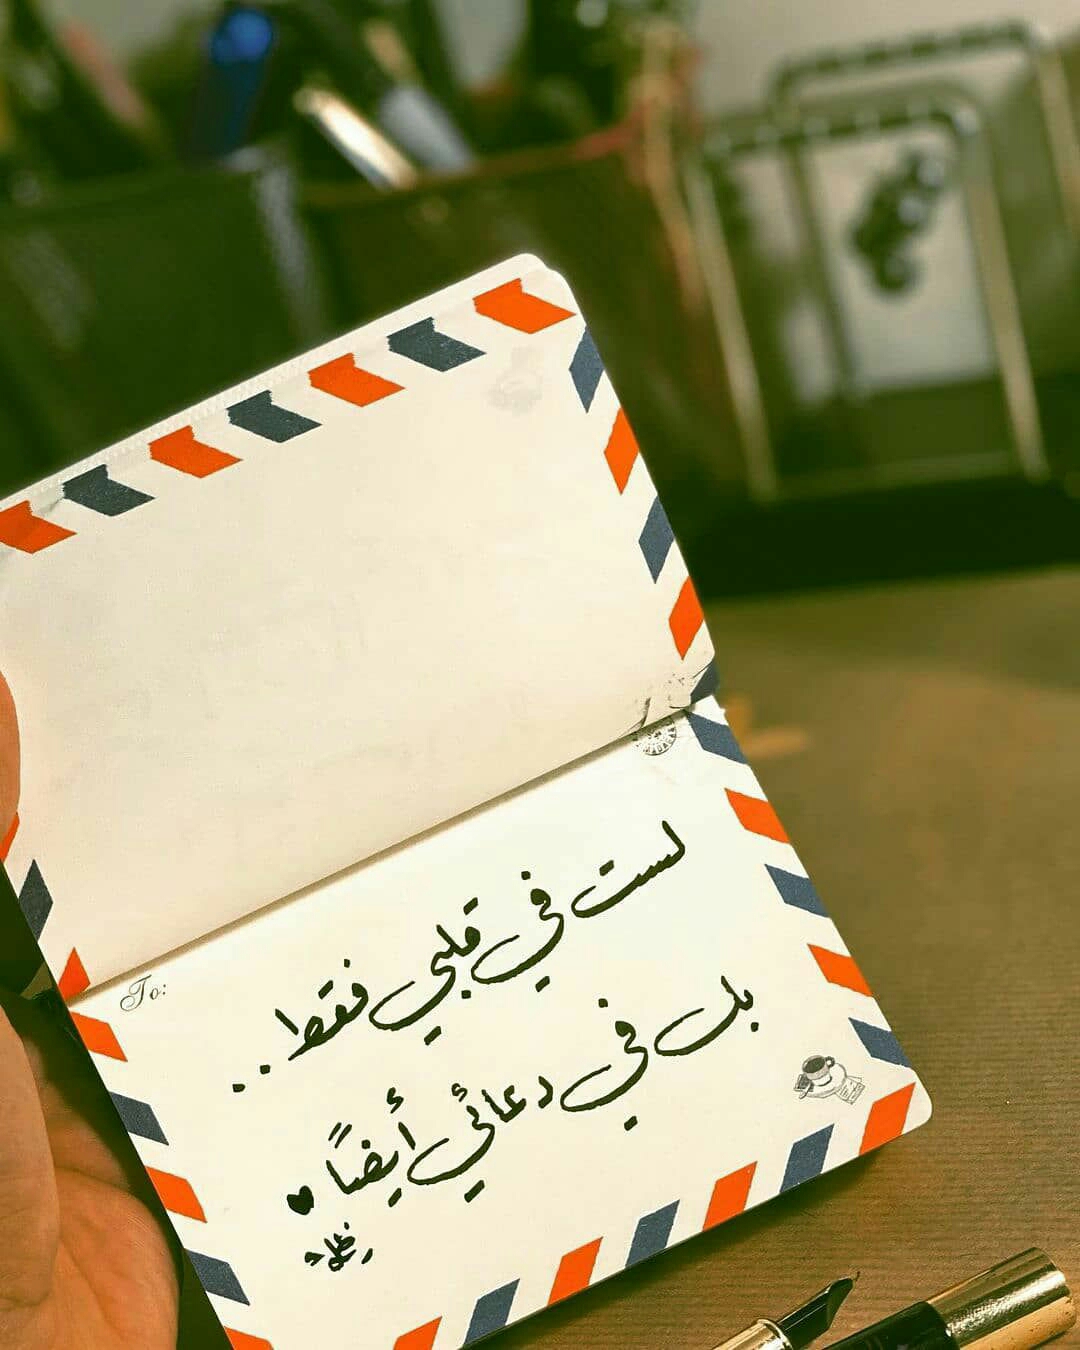 To:
لست في قلبي فقط..
بل في دعائي أيضاً ♥